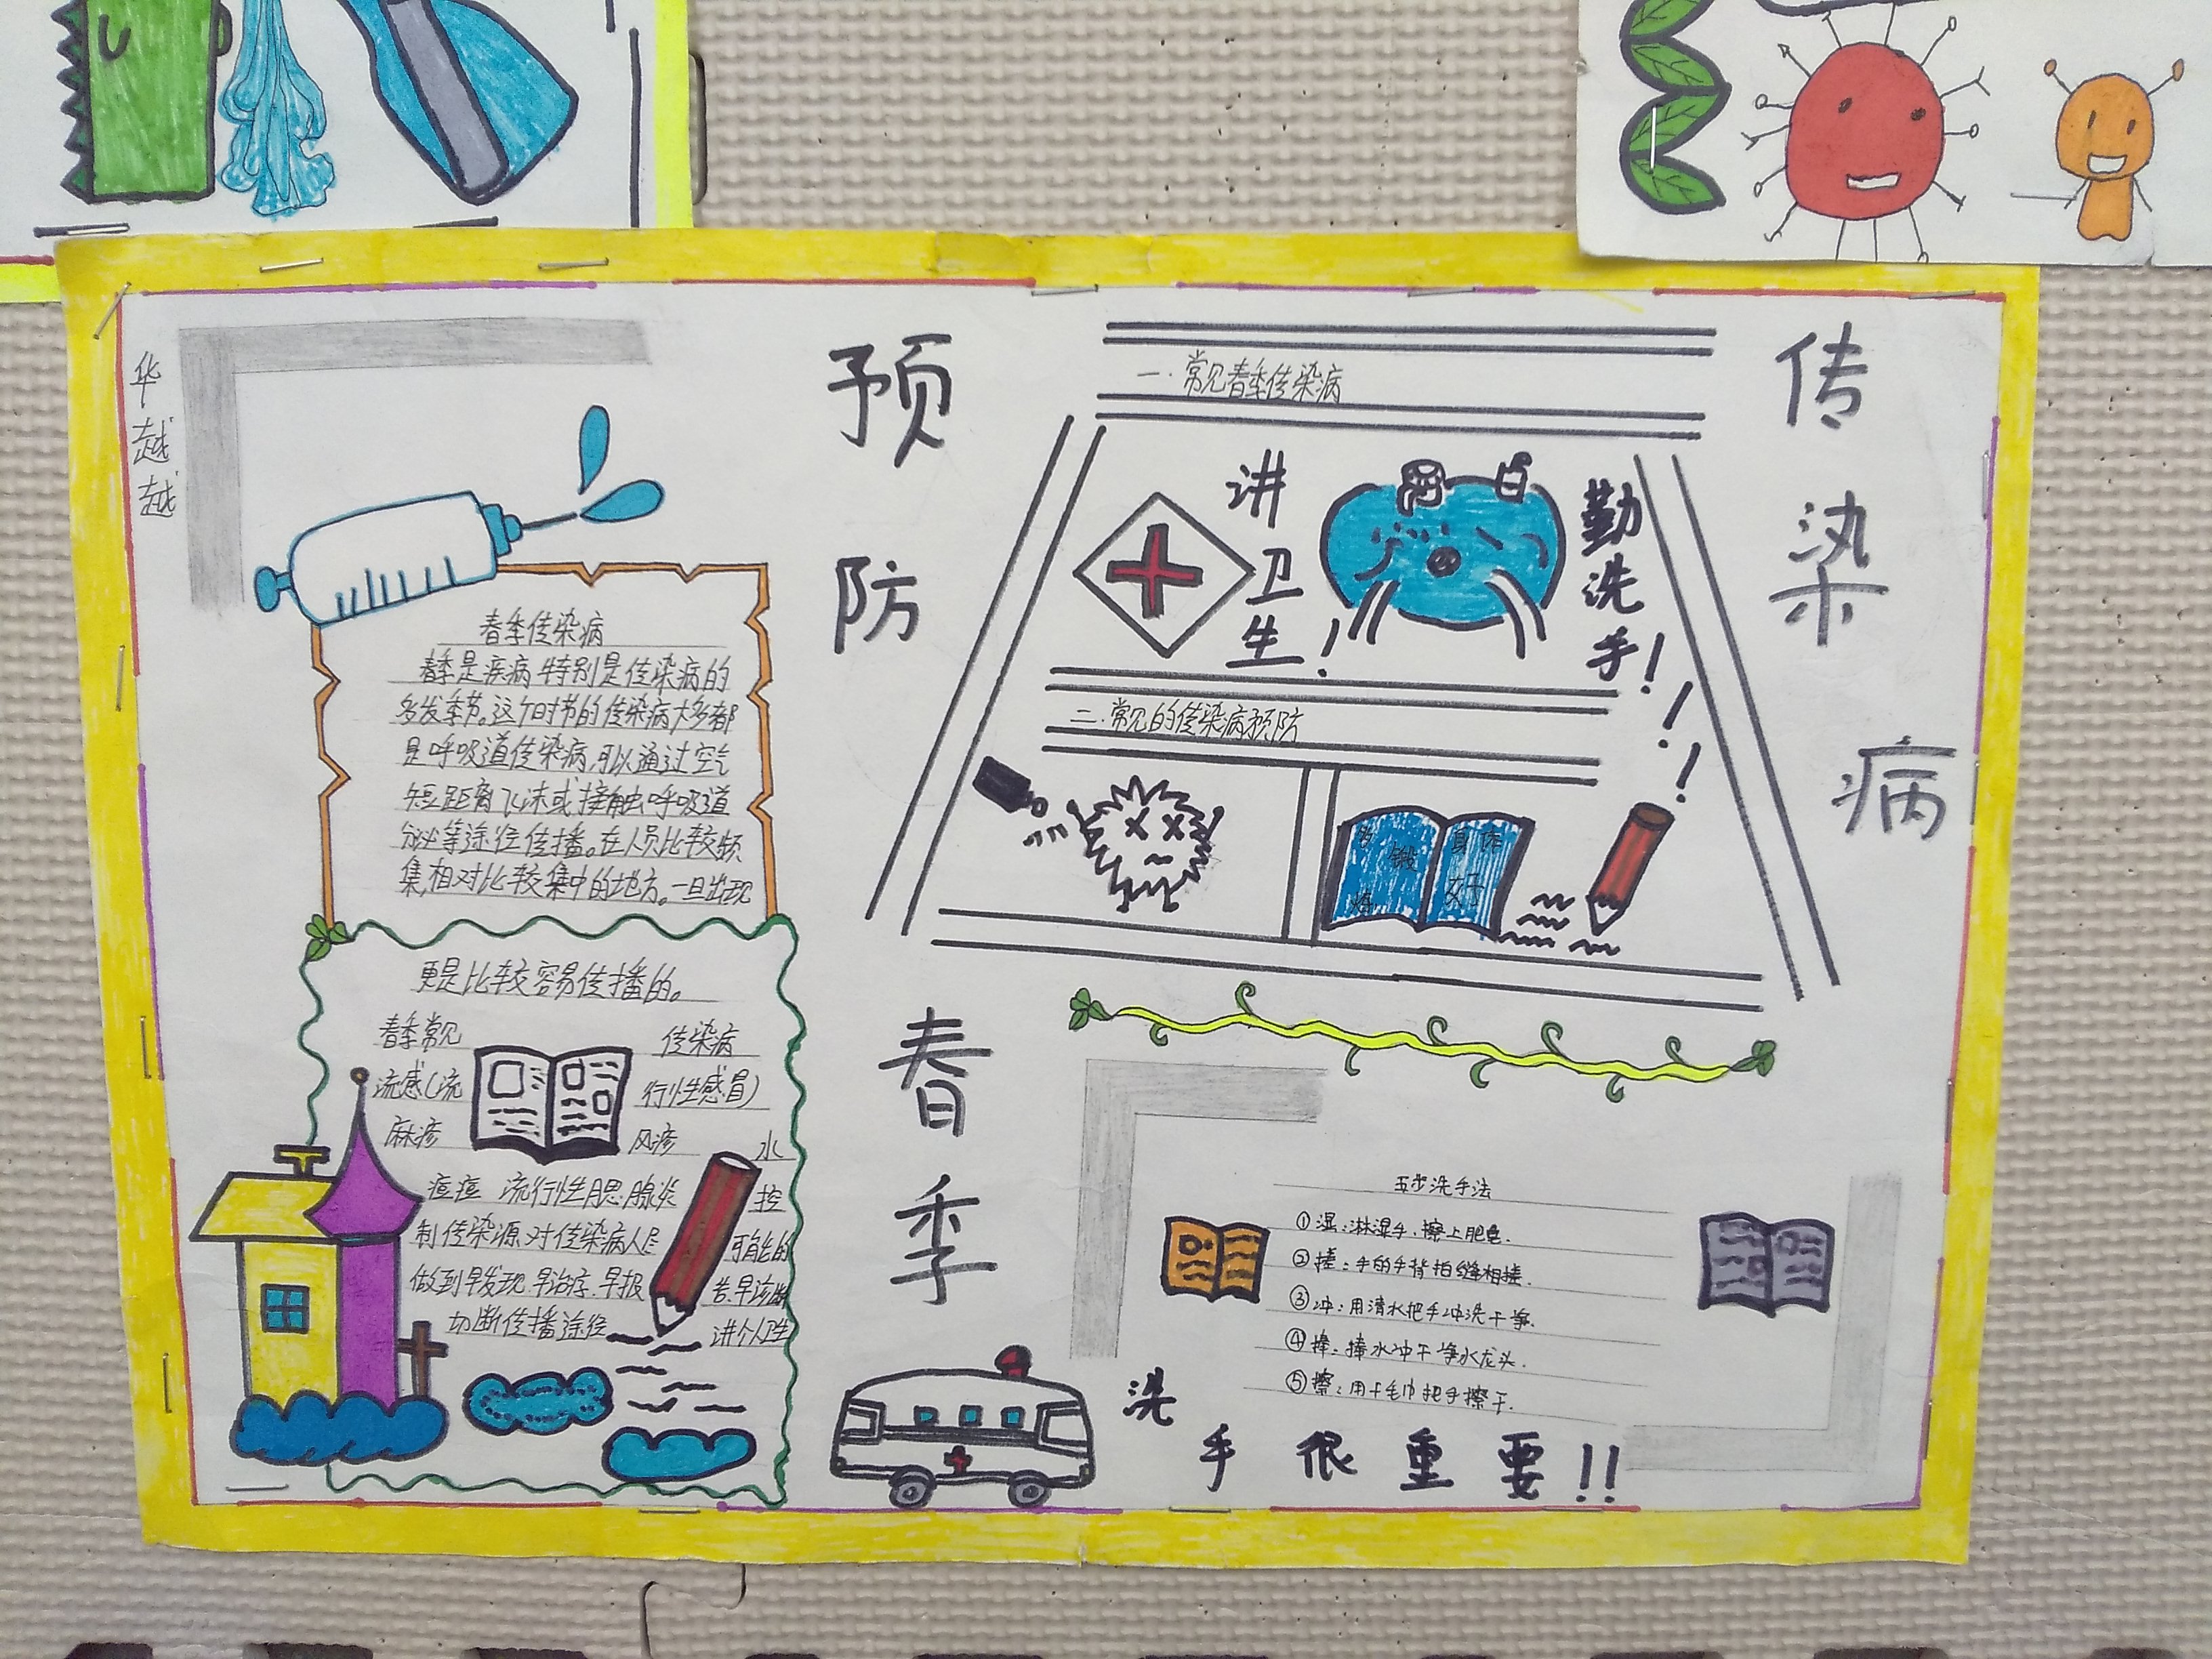 华越越
预防
春季
传染病
春季传染病
春季是疾病特别是传染病的
多发季节。这个时节的传染病大多都
是呼吸道传染病,可以通过空气
短距离飞沫或接触呼吸道
分泌等途径传播。在人员比较频
集,相对比较集中的地方。一旦出现
更是比较容易传播的。
春季常见 传染病
流感(流 行性感冒)
麻疹 风疹 水
痘痘 流行性腮腺炎 控
制传染源对传染病人尽 可能的
做到早发现.早治疗.早报 告.早诊断
切断传播途径 讲个人卫生
一.常见春季传染病
讲卫生!
勤洗手!!!
二.常见的传染病预防
多 锻 身 作
好
五步洗手法
①湿:淋湿手,擦上肥皂.
②搓:手的手背指缝相搓.
③冲:用清水把手冲洗干净.
④捧:捧水冲干净水龙头.
⑤擦:用干毛巾把手擦干.
洗手很重要!!